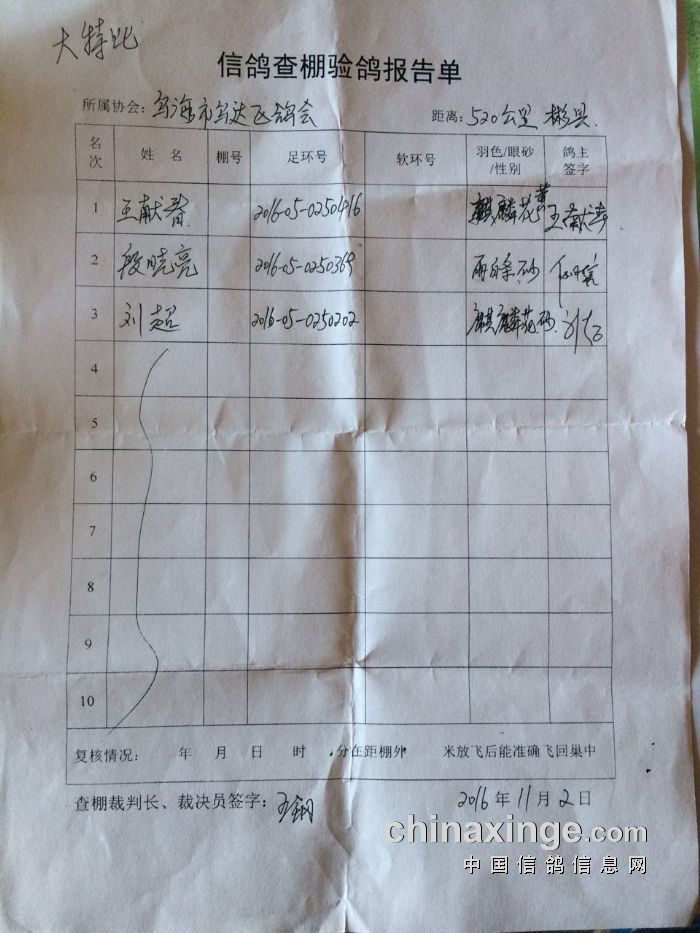 大特比
信鸽查棚验鸽报告单
所属协会：乌海市乌达飞鸽会 距离：520公里 彬县
名次 姓名 棚号 足环号 软环号 羽色/眼砂/性别 鸽主签字
1 王献春 2016-05-0250416 麒麟花黄 王献春
2 段晓亮 2016-05-0250364 雨白条.砂
3 刘超 2016-05-0250202 麒麟花.砂 刘超
4
5
6
7
8
9
10
复核情况： 年 月 日 时 分在距棚外 米放飞后能准确飞回巢中
查棚裁判长、裁决员签字：王钢 2016年11月2日
chinaxinge.com
中国信鸽信息网